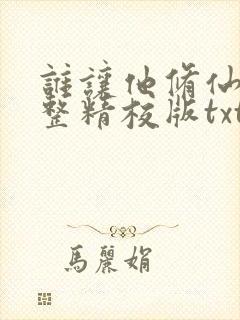 誰讓他脩仙
整精校版txt
馬麗娟